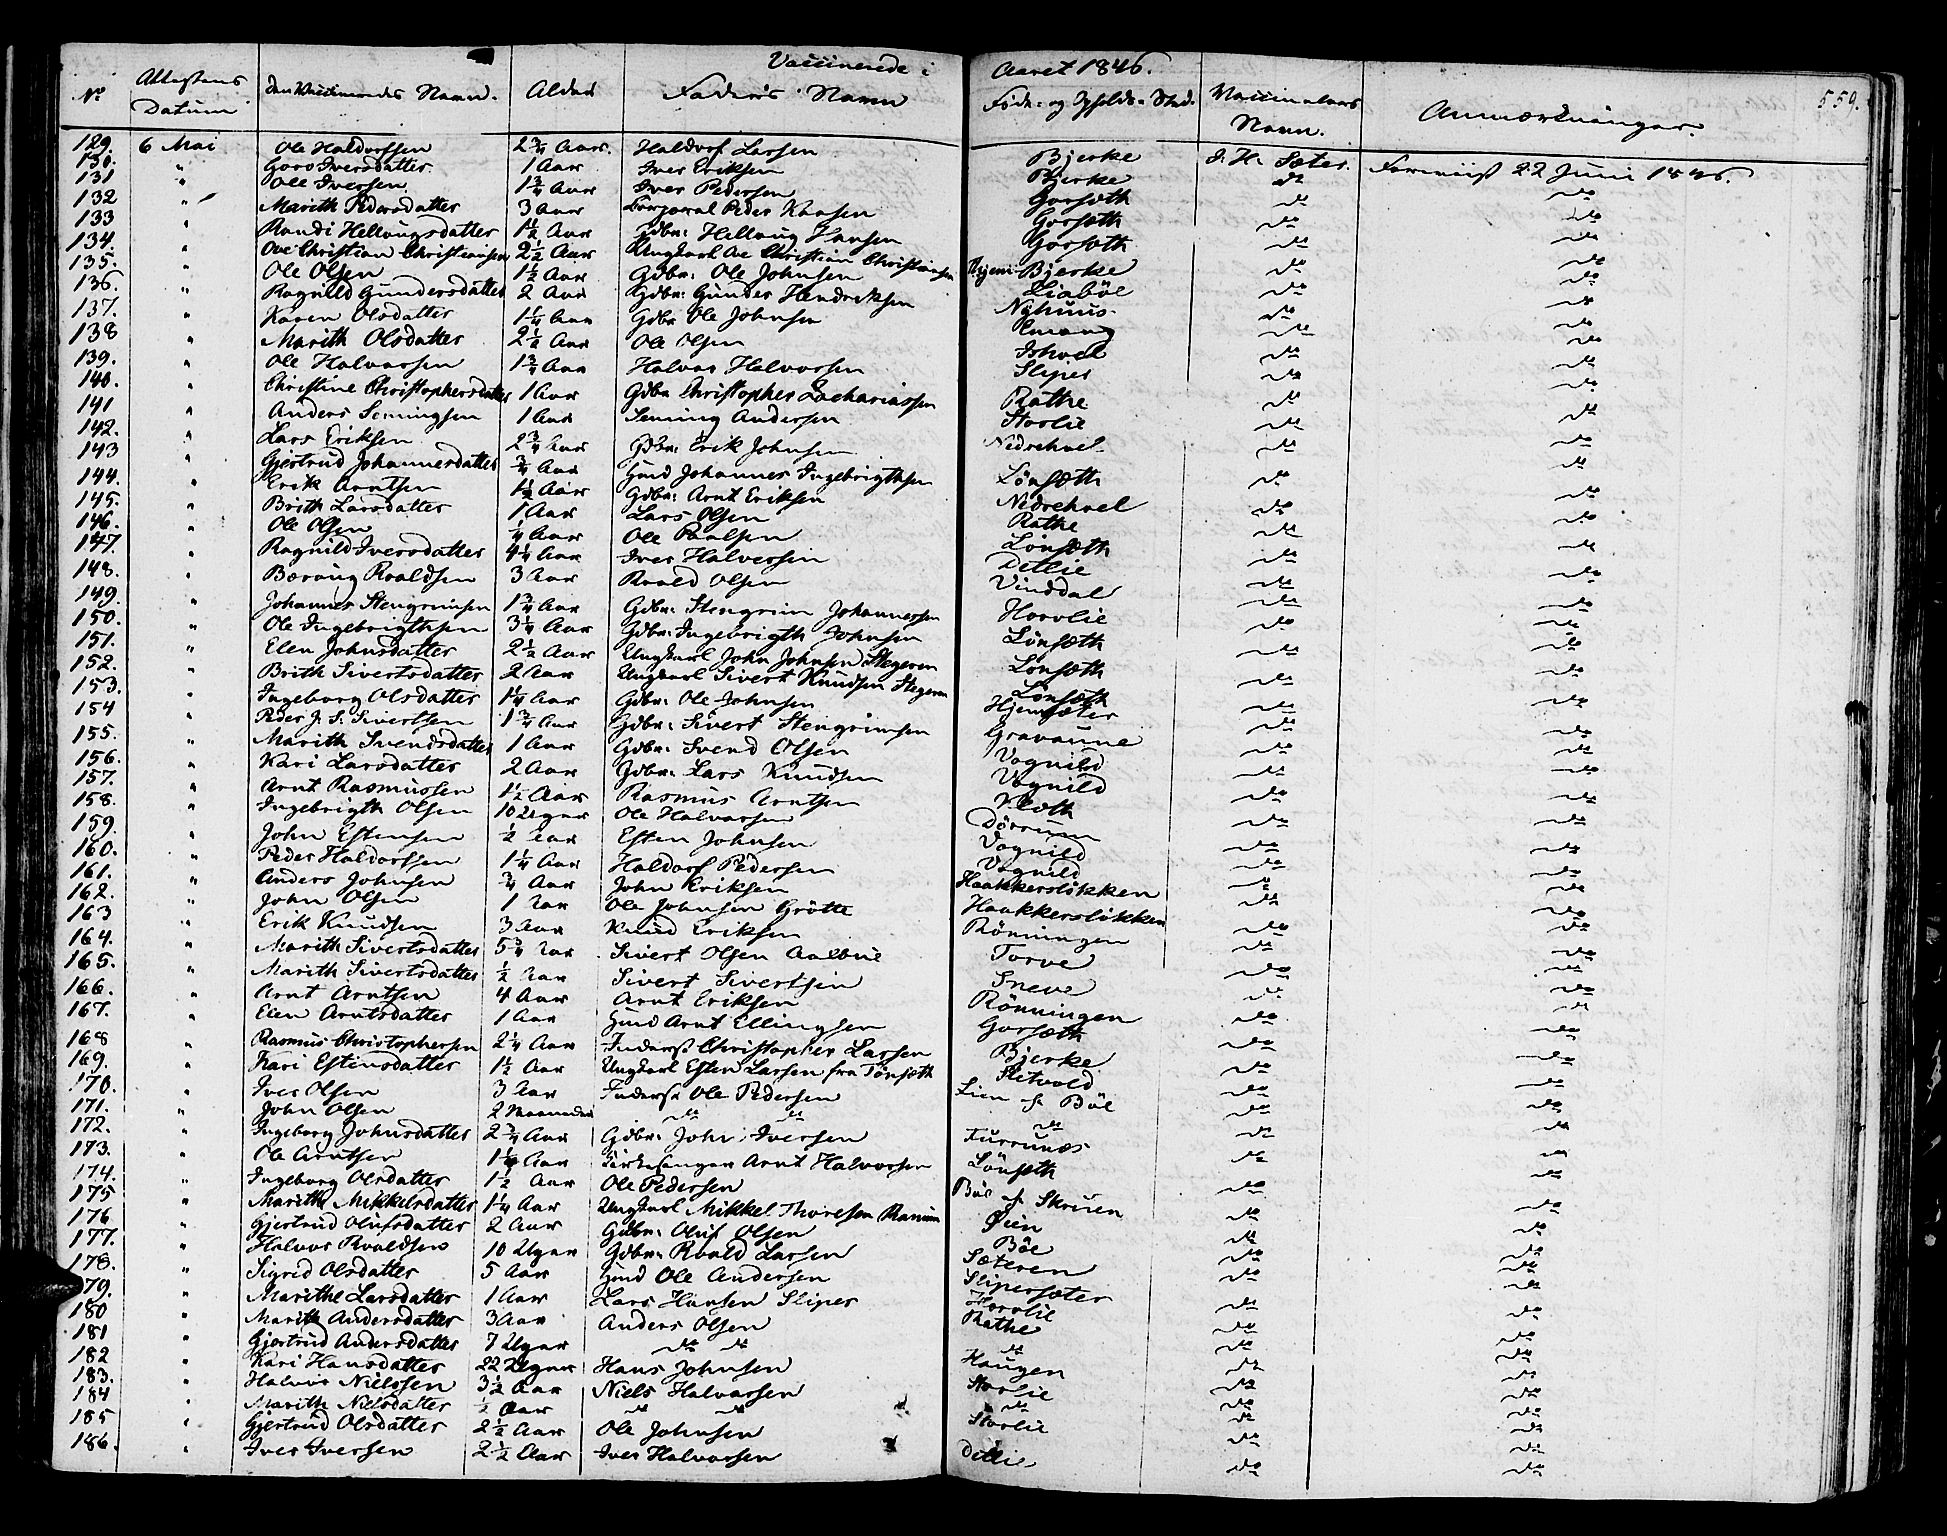 Vaccinerede i Aaret 1846.
559.
No Attestens Datum Den Vaccineredes Navn. Alder Faders Navn Føde- og Opholds-Sted. Vaccinateurs Navn. Anmærkninger.
129. 6 Mai Ole Haldorssen 2 3/4 Aar. Haldors Larsen Bjerke J. H. Sæter. Foreviist 22 Juni 1846.
130. " Goro Iversdatter 1 Aar Iver Eriksen Bjerke do do
131 " Ole Iversen 1 3/4 Aar Iver Pedersen Gorsæth do do
132 " Marith Pedersdatter 3 Aar Corporal Peder Kaasen Gorsæth do do
133 " Randi Hellaugsdatter 1 1/2 Aar Gdbr: Hellaug Hansen Gorsæth do do
134. " Ove Christian Christiansen 2 1/2 Aar Ungkarl Ove Christian Christiansen Bjerke do do
135. " Ole Olsen 1 1/2 Aar Gdbr: Ole Johnsen Liabøe do do
136. " Ragnild Gundersdatter 2 Aar Gdbr: Gunder Hendriksen Nyhuus do do
137. " Karen Olsdatter 1 1/4 Aar Gdbr Ole Johnsen do do
138 " Marith Olsdatter 2 1/2 Aar Ole Olsen Ishoel do do
139. " Ole Halvorsen 1 3/4 Aar Halvor Halvorsen Sliper do do
140. " Christine Christophersdatter 1 Aar Gdbr Christopher Zachariassen Rathe do do
141 " Anders Semingsen 1 Aar Seming Andersen Storlie do do
142. " Lars Eriksen 2 3/4 Aar Gdbr: Erik Johnsen Nedrehoel do do
143 " Gjertrud Johannesdatter 3/4 Aar Huusmd Johannes Ingebrigthsen Lønsæth do do
144. " Erik Arntsen 1 1/2 Aar Gdbr: Arnt Eriksen Nedrehoel do do
145. " Brith Larsdatter 1 Aar Lars Olsen Rathe do do
146. " Ole Olsen 1/4 Aar Ole Paalsen Lønsæth do do
147. " Ragnild Iversdatter 4 1/4 Aar Iver Halvorsen Detlie do do
148. " Roald­sen 3 Aar Roald Olsen Vinddal do do
149. " Johannes Stengrimsen 1 3/4 Aar Gdbr: Stengrim Johannessen Horvlie do do
150. " Ole Ingebrigthsen 3 1/4 Aar Gdbr: Ingebrigth Johnsen Lønsæth do do
151. " Elen Johnsdatter 2 1/2 Aar Ungkarl John Johnsen Stegeren Lønsæth do do
152. " Brith Sivertsdatter 2 Aar Ungkarl Sivert Knudsen Stegeren Lønsæth do do
153. " Ingeborg Olsdatter 1 1/4 Aar Gdbr: Ole Johnsen Hjemsæter do do
154 " Peder J. S. Sivertsen 1 3/4 Aar Gdbr: Sivert Stengrimsen Gravaune do do
155. " Marith Svendsdatter 1 Aar Gdbr: Svend Olsen Vognild do do
156. " Kari Larsdatter 2 Aar Gdbr: Lars Knudsen Vognild do do
157. " Arnt Rasmussen 1 1/2 Aar Rasmus Arntsen do do
158. " Ingebrigth Olsen 10 Uger Ole Halvorsen Dørrum do do
159. " John Estensen 1/2 Aar Esten Johnsen Vognild do do
160. " Peder Haldorssen 1 1/4 Aar Haldors Pedersen Vognild do do
161. " Anders Johnsen 3/4 Aar John Eriksen Haakkersløkken do do
162. " John Olsen 1 Aar Ole Johnsen Grøtte Haakkersløkken do do
163 " Erik Knudsen 3 Aar Knud Eriksen Rønningen do do
164. " Marith Sivertsdatter 5 3/4 Aar Sivert Olsen Aalbue Torve do do
165. " Marith Sivertsdatter 1/2 Aar Sivert Sivertsen Sneve do do
166. " Arnt Arntsen 4 Aar Arnt Eriksen Rønningen do do
167. " Elen Arntsdatter 1 Aar Huusmd Arnt Ellingsen Gorsæth do do
168 " Rasmus Christophersen 2 1/4 Aar Inderst Christopher Larsen Bjerke do do
169. " Kari Estensdatter 1 1/2 Aar Ungkarl Esten Larsen fra Tønsæth Sletvold do do
170. " Iver Olsen 3 Aar Inderst Ole Pedersen Lien af Böe do do
171. " John Olsen 2 Maaneder do do do do do
172. " Ingeborg Johnsdatter 2 3/4 Aar Gdbr: John Iversen Furrunæs do do
173. " Ole Arntsen 1 1/4 Aar Kirkesanger Arnt Halvorsen Lønsæth do do
174. " Ingeborg Olsdatter 1 1/2 Aar Ole Pedersen Böe af Skruen do do
175 " Marith Mikkelsdatter 1 1/4 Aar Ungkarl Mikkel Thoresen Ramum Øien do do
176 " Gjertrud Olufsdatter 2 Aar Gdbr: Oluf Olsen Böe do do
177. " Halvor Roaldsen 10 Uger Gdbr: Roald Larsen Sæteren do do
178. " Sigrid Olsdatter 5 Aar Huusmd Ole Andersen Slipersæter do do
179. " Marithe Larsdatter 1 Aar Lars Hansen Sliper Horvlie do do
180 " Marith Andersdatter 3 Aar Anders Olsen Rathe do do
181 " Gjertrud Andersdatter 7 Uger do do do do do
182 " Kari Hansdatter 22 Uger Hans Johnsen Haugen do do
183. " Halvor Nielssen 3 1/2 Aar Niels Halvorsen Storlie do do
184 " Marith Nielsdatter 1/2 Aar do do do do do
185 " Gjertrud Olsdatter 2 1/2 Aar Ole Johnsen Storlie do do
186. " Iver Iversen 2 1/2 Aar Iver Halvorsen Detlie do do